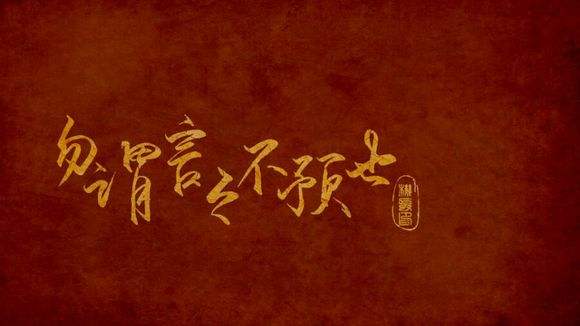 勿谓言之不预也